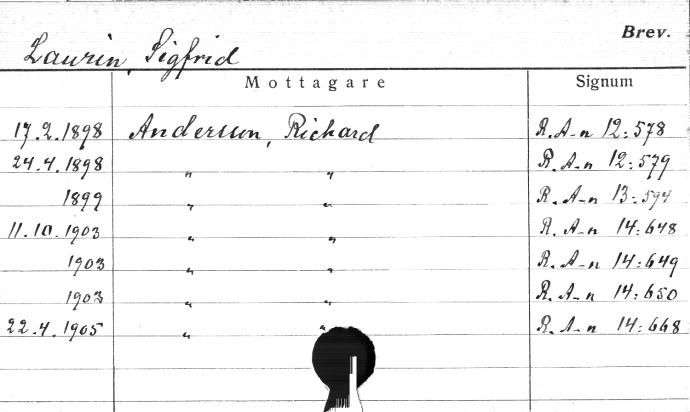 Brev.
Laurin, Sigfrid
Mottagare Signum
17.2.1898 Andersson, Richard R.A-n 12:578
24.4.1898 " " R.A-n 12:579
1899 " " R.A-n 13:594
11.10.1903 " " R.A-n 14:648
1903 " " R.A-n 14:649
1903 " " R.A-n 14:650
22.4.1905 " " R.A-n 14:668